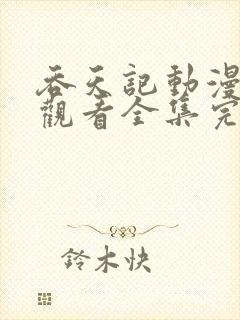 吞天記動漫
觀看全集完
鈴木快